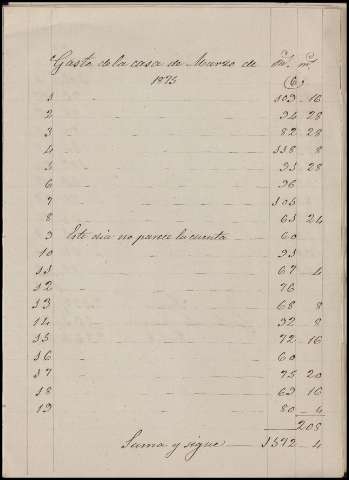 Gasto de la casa de Marzo de r.s m.s
(6)
1 109 16
2 94 28
3 82 28
4 118 8
5 91 28
6 96
7 105
8 61 24
9 Este dia no parece la cuenta 60
10 91
11 67 4
12 76
13 68 8
14 92 8
15 72 16
16 60
17 75 20
18 69 16
19 80 4
208
Suma y sigue 1572 4